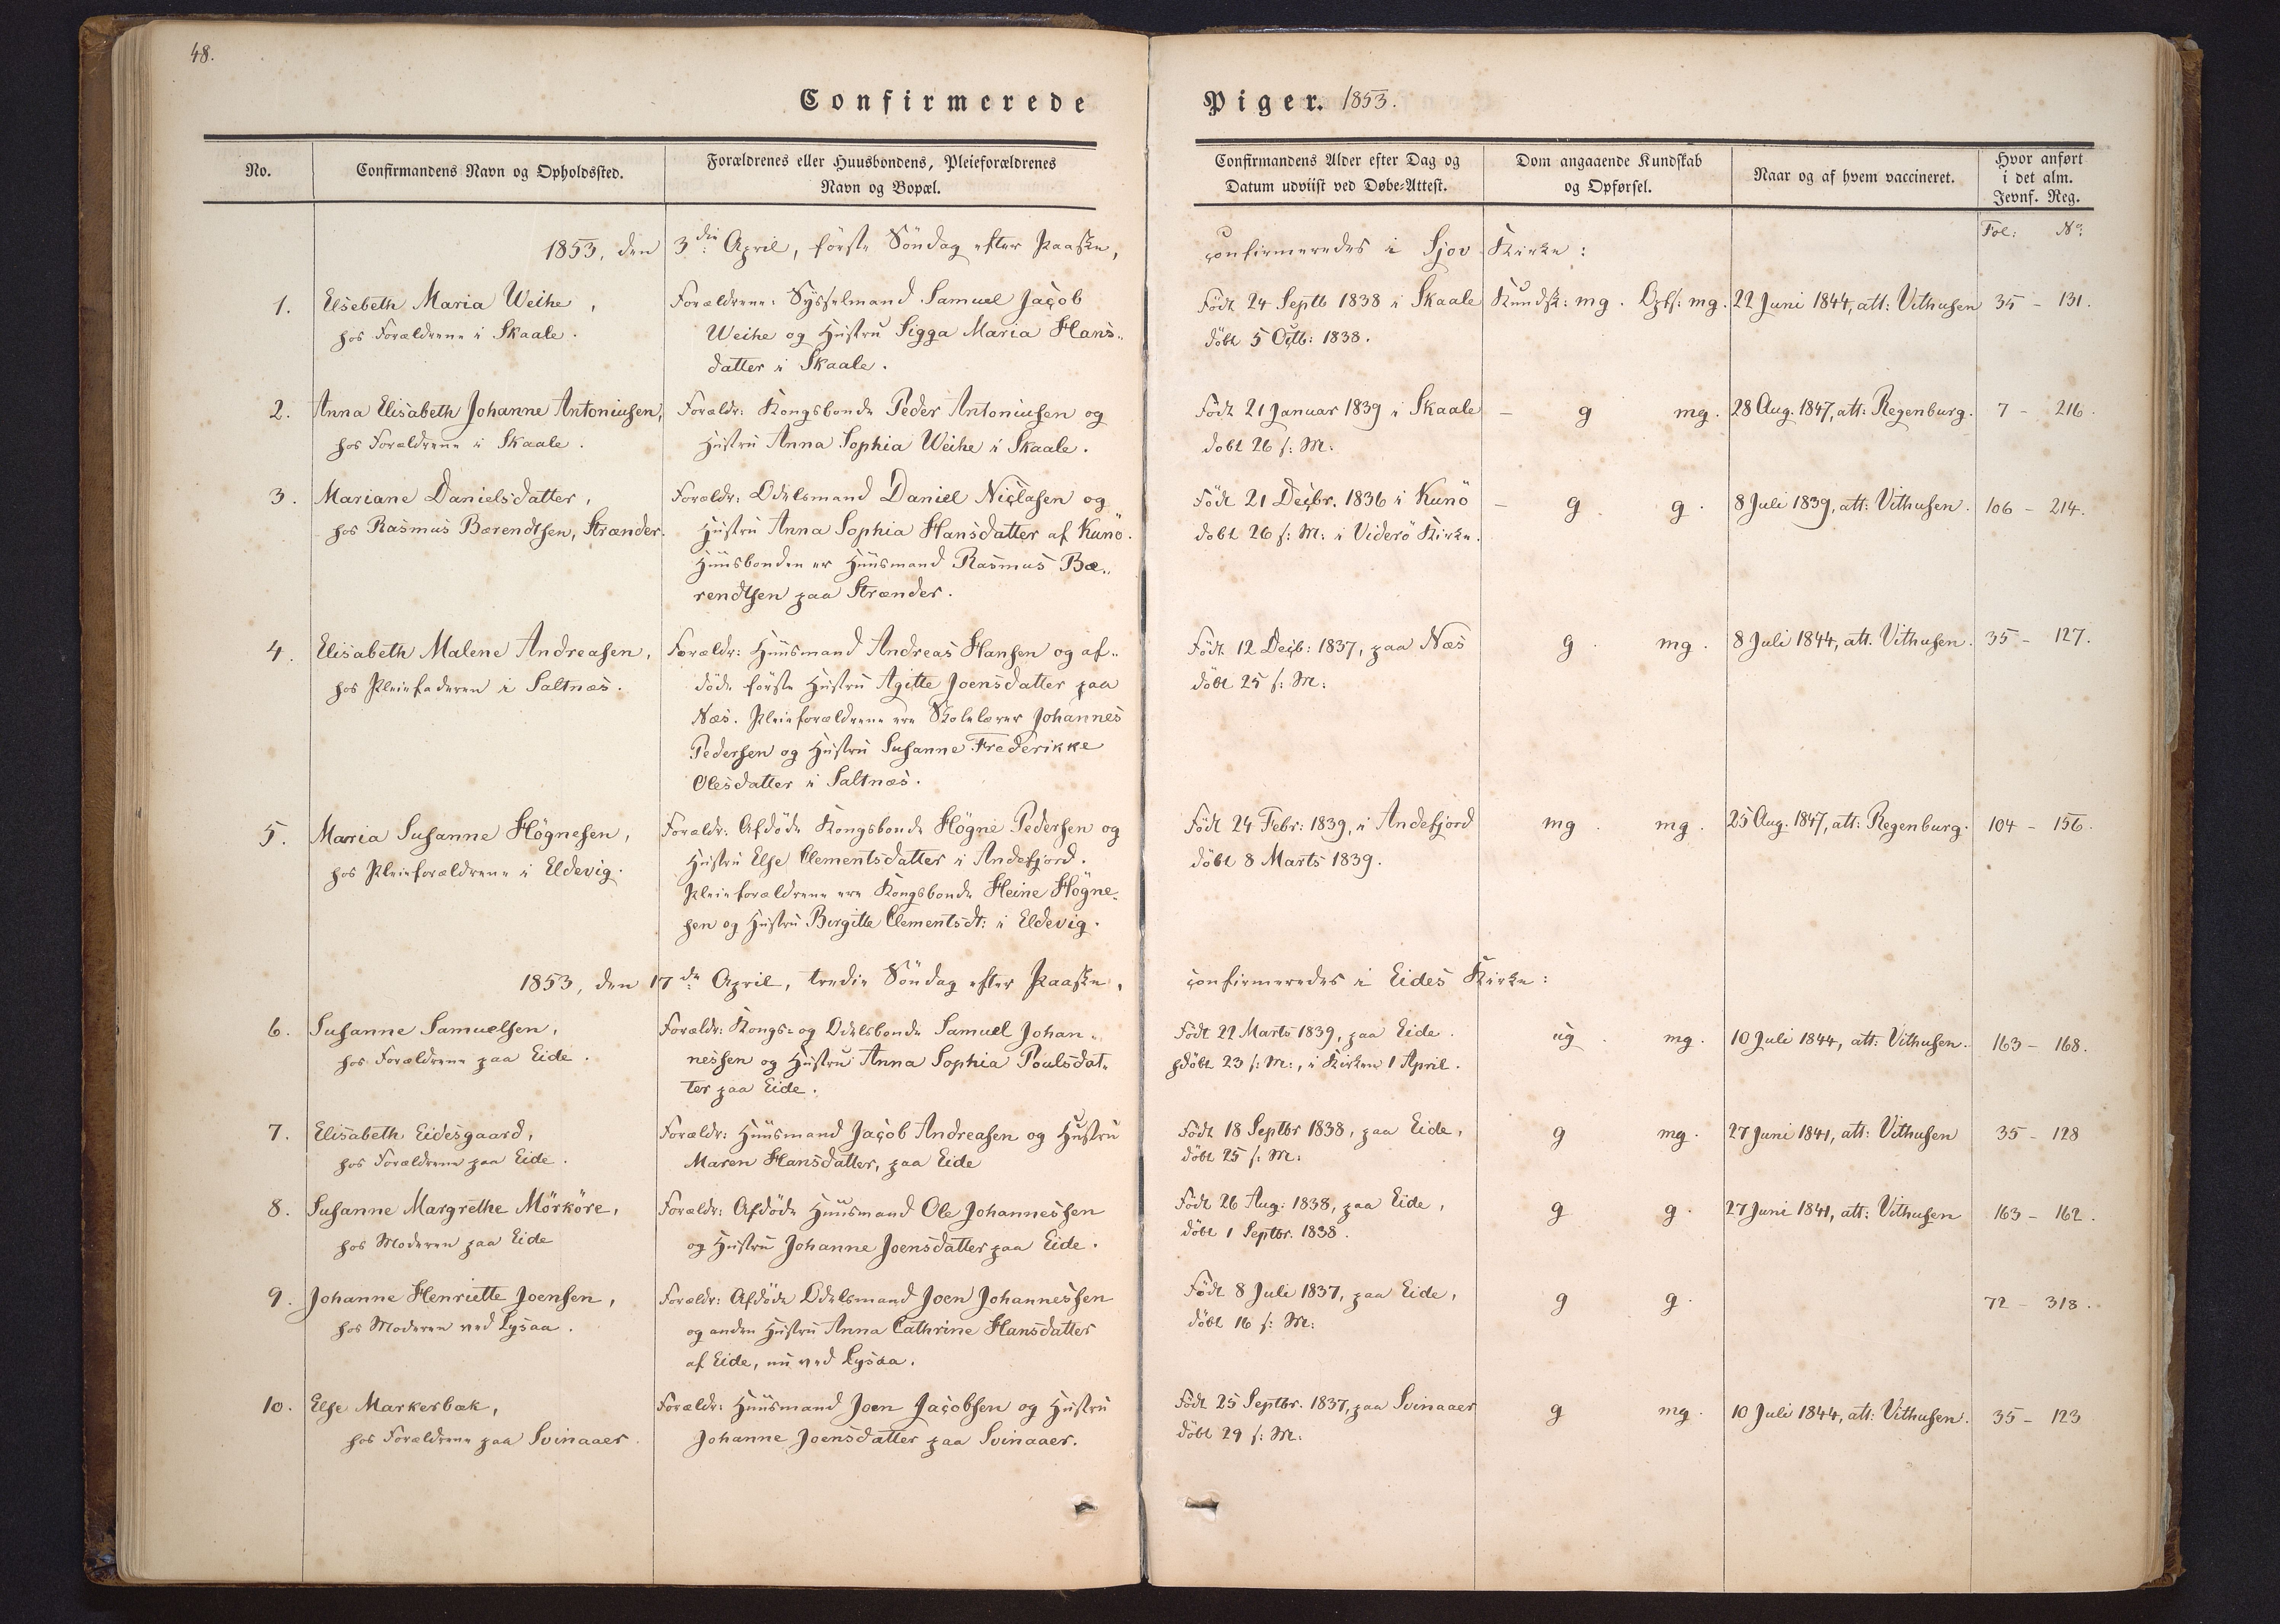 48.
Confirmerede Piger. 1853.
No.
Confirmandens Navn og Opholdssted.
Forældrenes eller Huusbondens, Pleieforældrenes
Navn og Bopæl.
Confirmandens Alder efter Dag og
Datum udviist ved Døbe-Attest.
Dom angaaende Kundskab
og Opførsel.
Naar og af hvem vaccineret.
Hvor anført
i det alm.
Jevnf. Reg.
Fol: No:
1853, den 3die April, förste Söndag efter Paaske, confirmeredes i Sjov Kirke:
1.
Elsebeth Maria Weihe,
hos Forældrene i Skaale.
Forældrene: Sysselmand Samuel Jacob
Weihe og Hustru Sigga Maria Hans-
datter i Skaale.
Födt 24 Septb 1838 i Skaale
döbt 5 Octb: 1838.
Kundsk: mg. Opf: mg.
22 Juni 1844, att: Vithusen
35 - 131.
2.
Anna Elisabeth Johanne Antoniusen,
hos Forældrene i Skaale.
Forældr: Kongsbonde Peder Antoniusen og
Hustru Anna Sophia Weihe i Skaale.
Födt 21 Januar 1839 i Skaale
döbt 26 s: M:
- g mg.
28 Aug. 1847, att: Regenburg.
7 - 216.
3.
Mariane Danielsdatter,
hos Rasmus Bærendtsen, Strænder.
Forældr: Odelsmand Daniel Niclasen og
Hustru Anna Sophia Hansdatter af Kunö.
Huusbonden er Huusmand Rasmus Bæ-
rendtsen paa Strænder.
Födt 21 Decbr. 1836 i Kunö
döbt 26 s: M: i Viderö Kirke.
- g. g.
8 Juli 1839, att: Vithusen.
106 - 214.
4.
Elisabeth Malene Andreasen,
hos Pleiefaderen i Saltnæs.
Forældr: Huusmand Andreas Hansen og af-
döde förste Hustru Agitte Joensdatter paa
Næs. Pleieforældrene ere Skolelærer Johannes
Pedersen og Hustru Susanne Frederikke
Olesdatter i Saltnæs.
Födt 12 Decb: 1837, paa Næs
döbt 25 s: M:
g. mg.
8 Juli 1844, att. Vithusen.
35 - 127.
5.
Maria Susanne Högnesen,
hos Pleieforældrene i Eldevig.
Forældr: Afdöde Kongsbonde Högne Pedersen og
Hustru Else Clementsdatter i Andefjord.
Pleieforældrene ere Kongsbonde Heine Högne-
sen og Hustru Birgitte Clementsdt: i Eldevig.
Födt 24 Febr: 1839, i Andefjord
döbt 8 Marts 1839.
mg. mg.
25 Aug. 1847, att: Regenburg.
104 - 156.
1853, den 17de April, tredie Söndag efter Paaske, confirmeredes i Eides Kirke:
6.
Susanne Samuelsen,
hos Forældrene paa Eide.
Forældr: Kongs- og Odelsbonde Samuel Johan-
nessen og Hustru Anna Sophia Poulsdat-
ter paa Eide.
Födt 22 Marts 1839, paa Eide.
hdöbt 23 s: M:, i Kirken 1 April.
ug. mg.
10 Juli 1844, att: Vithusen.
163 - 168.
7.
Elisabeth Eidesgaard,
hos Forældrene paa Eide.
Forældr: Huusmand Jacob Andreasen og Hustru
Maren Hansdatter, paa Eide
Födt 18 Septbr 1838, paa Eide,
döbt 25 s: M:
g mg.
27 Juni 1841, att: Vithusen
35 - 128
8.
Susanne Margrethe Mörköre,
hos Moderen paa Eide
Forældr: Afdöde Huusmand Ole Johannessen
og Hustru Johanne Joensdatter paa Eide.
Födt 26 Aug: 1838, paa Eide,
döbt 1 Septbr. 1838.
g g.
27 Juni 1841, att: Vithusen
163 - 162.
9.
Johanne Henriette Joensen,
hos Moderen ved Lysaa.
Forældr: Afdöde Odelsmand Joen Johannessen
og anden Hustru Anna Cathrine Hansdatter
af Eide, nu ved Lysaa.
Födt 8 Juli 1837, paa Eide,
döbt 16 s: M:
g g.
72 - 318.
10.
Else Markerbak,
hos Forældrene paa Svinaaer.
Forældr: Huusmand Joen Jacobsen og Hustru
Johanne Joensdatter paa Svinaaer.
Födt 25 Septbr. 1837, paa Svinaaer
döbt 29 s: M:
g mg.
10 Juli 1844, att: Vithusen.
35 - 123